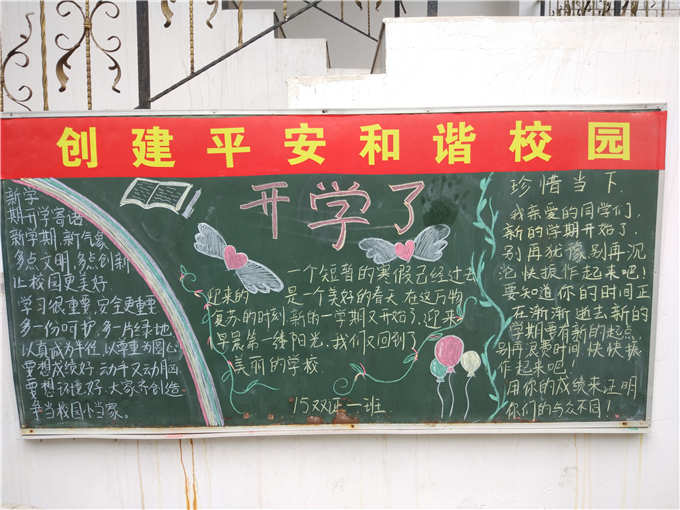 创建平安和谐校园
开学了
新学
期开学寄语
新学期,新气象
多点文明,多点创新
让校园更美好
学习很重要,安全更重要
多一份呵护,多一片绿地
以真诚为半径,以尊重为圆心
要想成绩好,动手又动脑
要想环境好,大家齐创造
争当校园小当家。
一个短暂的寒假已经过去
迎来的 是一个美好的春天,在这万物
复苏的时刻,新的一学期又开始了,迎来
早晨第一缕阳光,我们又回到了
美丽的学校.
15双证一班
珍惜当下.
我亲爱的同学们,
新的学期开始了.
别再犹豫,别再沉
沦,快振作起来吧!
要知道你的时间正
在渐渐逝去,新的
学期要有新的起点
别再浪费时间,快快振
作起来吧
用你的成绩来证明
你们的与众不同!